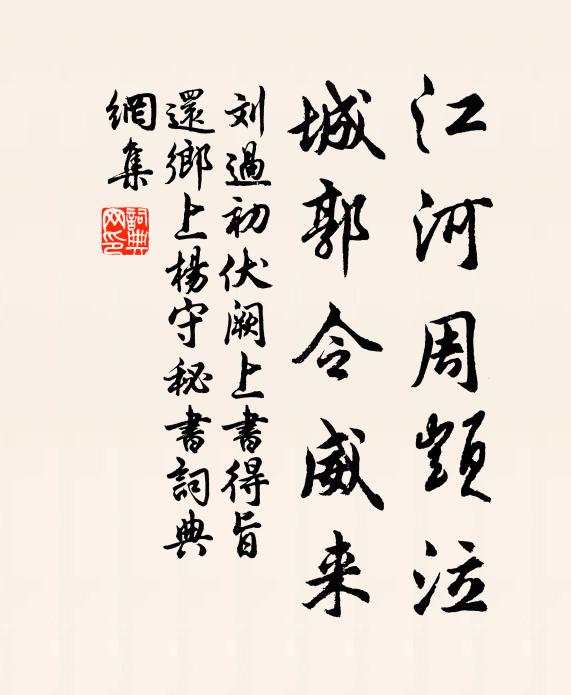 江河周顗泣
城郭令威来
刘過初伏阙上書得旨
還鄉上楊守秘書詞典
網集
詞典网印